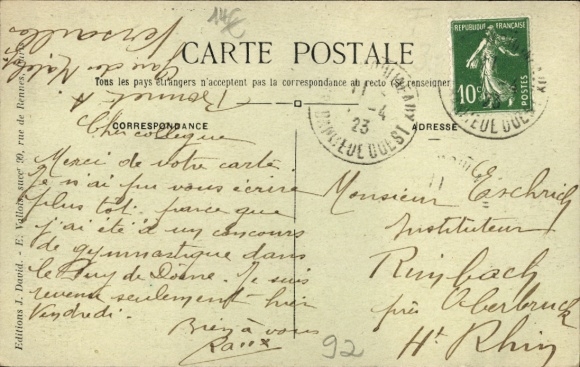 14€
CARTE POSTALE
Tous les pays étrangers n'acceptent pas la correspondance au recto (se renseigner
RÉPUBLIQUE FRANÇAISE
10c
POSTES
11
-4
23
BANLIEUE OUEST
BANLIEUE OUEST
Versailles
CORRESPONDANCE
ADRESSE
Cher collègue
Merci de votre carte
je n'ai pu vous écrire
plus tôt parce que
j'ai été à un concours
de gymnastique dans
le Puy de Dôme. Je suis
revenu seulement hier
Vendredi.
Bien à vous
Raux
Monsieur Eschrich
Instituteur
Rimbach
près Oberbruck
Ht Rhin
92
Editions J. David. - E. Vallois, succr 99, rue de Rennes, Paris